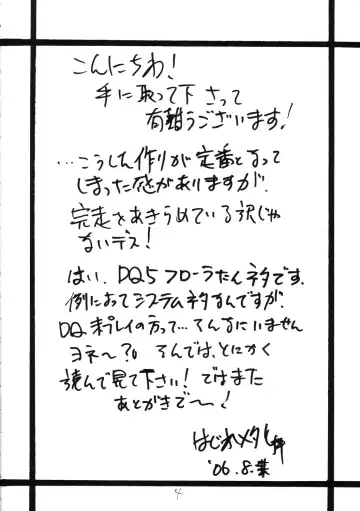 こんにちわ!
手に取って下さって
有難うございます!
…こうした作りが定番となって
しまった感がありますが、
完走をあきらめている訳じゃ
ないデス!
はい、DQ5フローラたんネタです。
例によってシステムネタなんですが、
DQ未プレイの方って…そんなにいません
ヨネ〜?。 そんでは、とにかく
読んで見て下さい! ではまた
あとがきで〜!
'06.8.
4